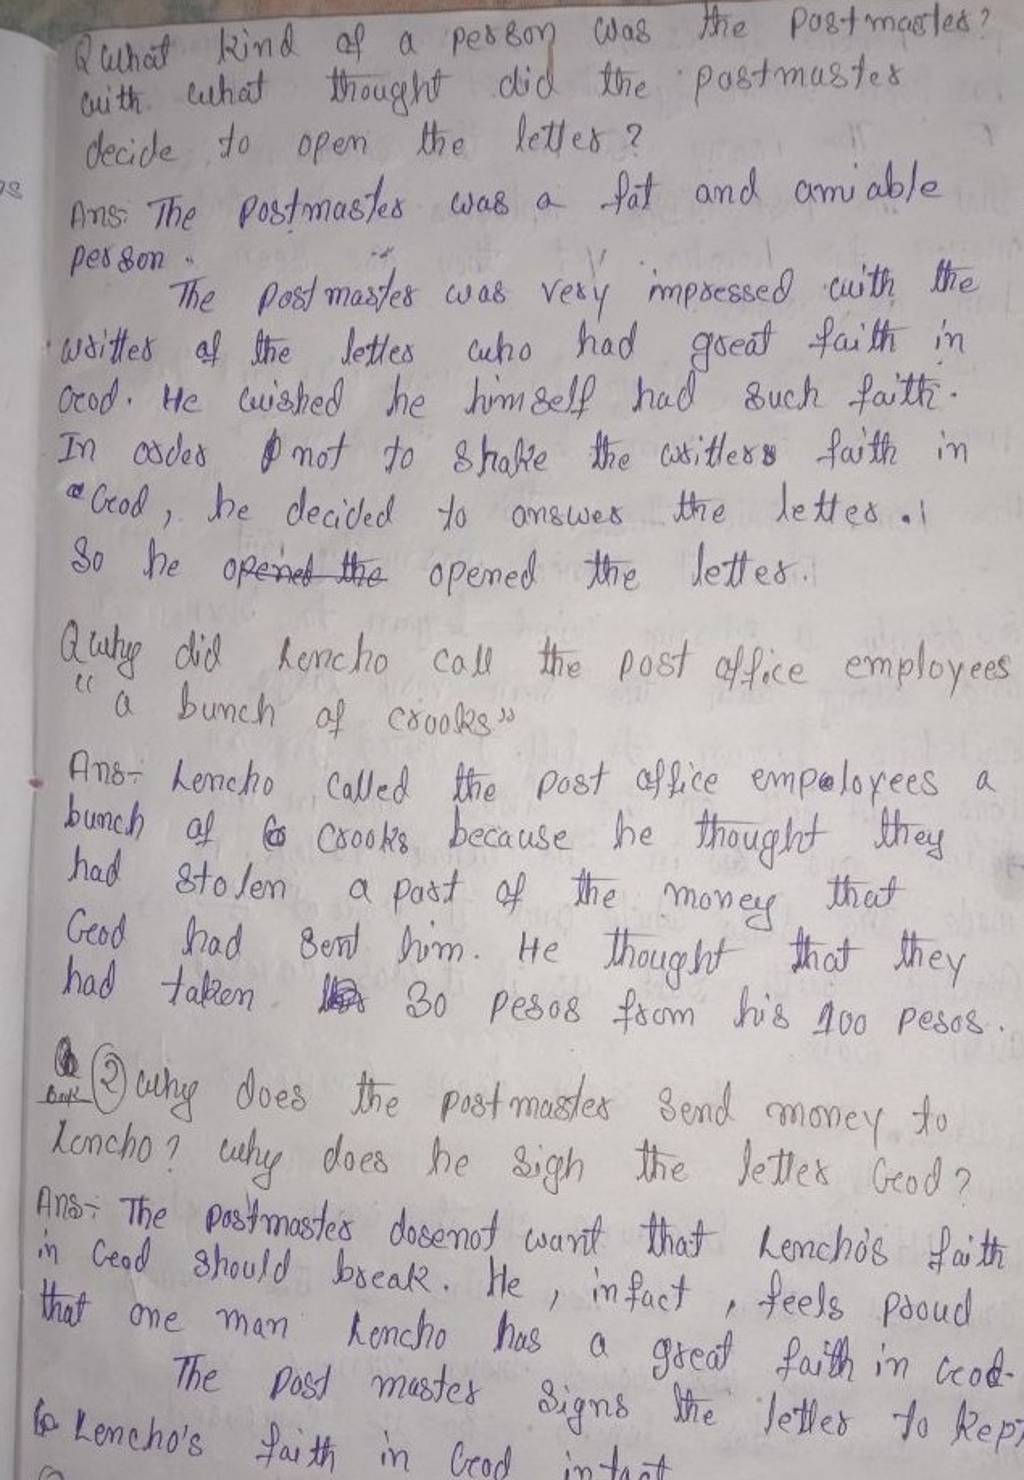 Q what kind of a person was the postmaster?
with what thought did the postmaster
decide to open the letter?
Ans: The postmaster was a fat and amiable
person.
The postmaster was very impressed with the
writter of the letter who had great faith in
God. He wished he himself had such faith.
In order not to shake the writters faith in
God, he decided to answer the letter.
So he opened the opened the letter.
Q why did Lencho call the post office employees
"a bunch of crooks"
Ans:- Lencho called the post office empoloyees a
bunch of crooks because he thought they
had stolen a part of the money that
God had sent him. He thought that they
had taken 30 pesos from his 100 pesos.
② why does the postmaster send money to
Lencho? why does he sigh the letter God?
Ans:- The postmaster dosenot want that Lencho's faith
in God should break. He, infact, feels proud
that one man Lencho has a great faith in God.
The post master signs the letter to kept
Lencho's faith in God intact